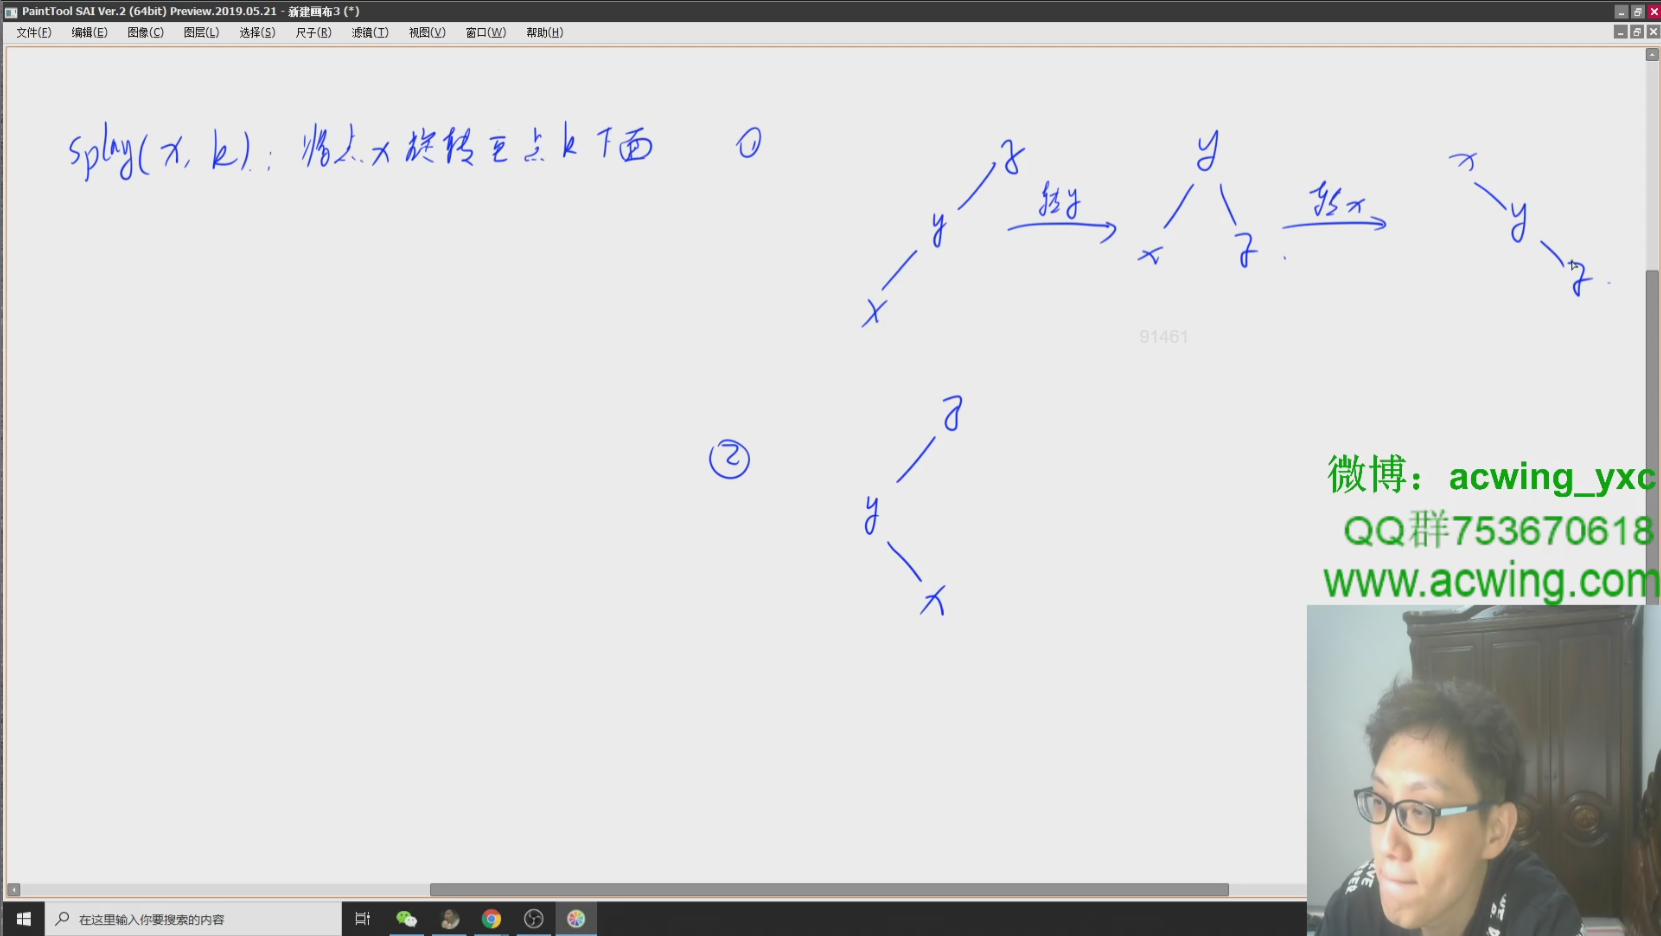 PaintTool SAI Ver.2 (64bit) Preview.2019.05.21 - 新建画布3 (*)
文件(F) 编辑(E) 图像(C) 图层(L) 选择(S) 尺子(R) 滤镜(T) 视图(V) 窗口(W) 帮助(H)
splay(x, k): 将点x旋转至点k下面
①
z
y
x
转y
y
x z
转x
x
y
z
91461
②
z
y
x
微博：acwing_yxc
QQ群753670618
www.acwing.com
在这里输入你要搜索的内容